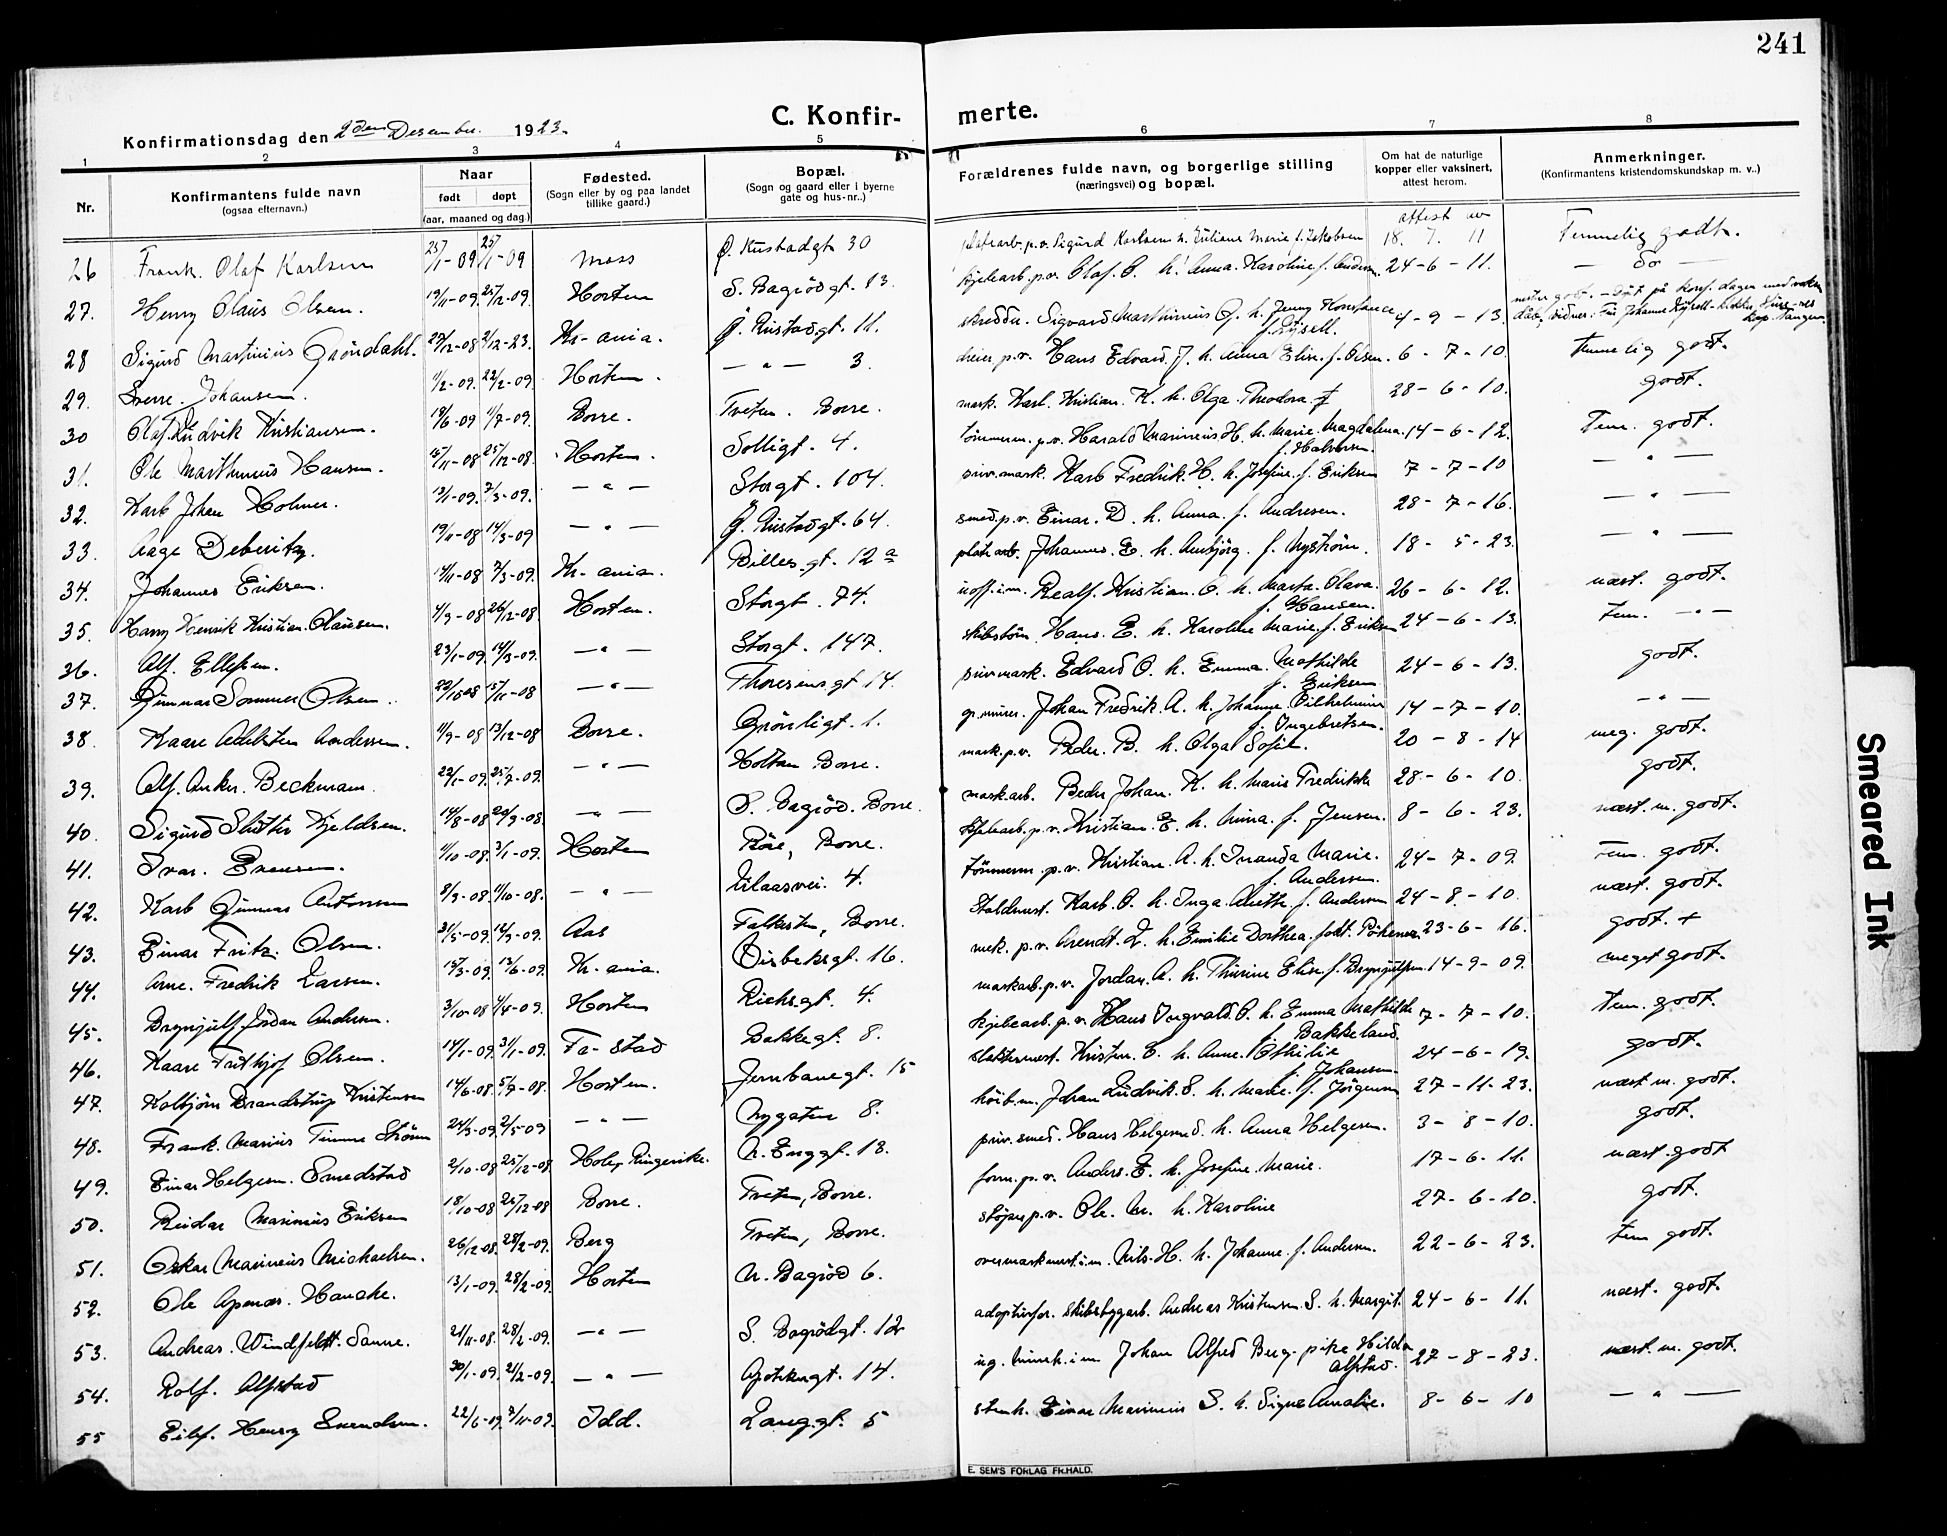 241
C. Konfir- merte.
Konfirmationsdag den 2den Desember 1923.
1 2 3 4 5 6 7 8
Nr. Konfirmantens fulde navn (ogsaa efternavn.) Naar født døpt (aar, maaned og dag.) Fødested. (Sogn eller by og paa landet tillike gaard.) Bopæl. (Sogn og gaard eller i byerne gate og hus-nr..) Forældrenes fulde navn, og borgerlige stilling (næringsvei) og bopæl. Om hat de naturlige kopper eller vaksinert, attest herom. Anmerkninger. (Konfirmantens kristendomskundskap m. v..)
26 Frank Olaf Karlsen 25/1-09 25/1-09 Moss Ø. Rustadgt 30 p.v. Sigurd Karlsen h. Juliane Marie f. Jakobsen attest av 18. 7. 11 Temmelig godt.
27. Henry Claus Olsen. 19/11-09. 25/12-09. Horten S. Bagrødgt. 13 kjelearb. p.v. Olaf O. h. Anna Karoline f. Andersen. 24-6-11. — do —
28 Sigurd Martinius Grøndahl. 29/12-08 2/12-23. Kr-ania. Ø. Rustadgt. 11. skredder. Sigvard Marthinius G. h. Jenny Konstance 4-9-13.
29. Sverre Johansen. 1/2-09. 22/2-09. Horten. — " — 3. dreier p.v. Hans Edvard J. h. Anna Elise f. Olsen. 6-7-10. Temmelig godt.
30 Olaf Ludvik Kristiansen. 18/6-09 1/7-09. Borre. Tveten. Borre. mask. Karl Kristian K. h. Olga Theodora 28-6-10. godt.
31. Ole Marthinius Hansen. 15/11-08 25/12-08. Horten. Solligt. 4. tømmerm. p.v. Harald Marinius H. h. Marie Magdalena f. Halvorsen. 14-6-12. Tem. godt.
32. Karl Johan Holmer. 13/1-09. 7/3-09. — " — Storgt. 104. priv.mask. Karl Fredrik H. h. Josefine f. Eriksen 7-7-10 — " —
33. Aage Deberitz. 19/11-08 14/3-09 — " — Ø. Rustadgt. 64. smed p.v. Einar D. h. Anna f. Andresen. 28-7-16. — " —
34. Johannes Eriksen. 14/11-08 7/3-09. Kr-ania. Billes gt. 12 a platearb. Johannes E. h. Ambjørg f. Nystrøm. 18-5-23. — " —
35. Harry Henrik Kristian Clausen. 4/9-08 26/12-08 Horten. Storgt. 74. uoff. i m. Realf Kristian C. h. Marta Olava f. Hansen. 26-6-12. næst. godt.
36. Alf Ellefsen. 23/1-09. 14/3-09. — " — Storgt. 147. skibstøm. Hans E. h. Karoline Marie f. Eriksen 24-6-13. tem. — " —
37. Gunnar Sommer Olsen. 22/10-08 15/11-08 — " — Thoresensgt 14. priv.mask. Edvard O. h. Emma Mathilde f. Eriksen 24-6-13. godt.
38. Kaare Adelsten Andersen. 11/9-08 13/12-08 Borre. Grønligt. 1. gr. murer. Johan Fredrik A. h. Johanne Vilhelmine f. Ingebretsen. 14-7-10. — " —
39. Alf Anker Beckman. 22/1-09. 25/7-09. — " — Holtan Borre. mask. p.v. Peder B. h. Olga Sofie. 20-8-14 meg. godt.
40. Sigurd Slutter Kjeldsen. 14/8-08 20/9-08. — " — S. Bagrød. Borre. maskarb. Peder Johan K. h. Maris Fredrikke 28-6-10. godt.
41. Ivar Evensen. 1/10-08. 3/1-09. Horten Røre, Borre. kjelearb. p.v. Kristian E. h. Mina f. Jensen. 8-6-23. næst. m. godt.
42. Karl Gunnar Antonsen 8/9-08. 11/10-08. — " — Ulaasvei. 4. tømmerm. p.v. Kristian A. h. Inanda Marie f. Andersen. 24-7-09. Tem. godt.
43. Einar Fritz Olsen. 31/5-09. 12/9-09. Aas Falkesten, Borre. Staldmest. Karl O. h. Inga Aleth f. Andersen 24-8-10. næst. godt.
44. Arne Fredrik Larsen. 15/3-09. 13/6-09. Kr-ania. Disbeksgt. 16. mek. p.v. Arendt L. h. Emilie Dorthea født 23-6-16. godt. +
45. Brynjulf Jordan Andersen. 3/10-08 4/4-09. Horten Richsgt. 4. maskarb. p.v. Jordan A. h. Thurine Elise f. Brynjulfsen. 14-9-09. meget godt.
46. Kaare Frithjof Olsen. 14/1-09. 31/1-09. Fa-stad Bakkegt. 8. kjelearb. p.v. Hans Ingvald O. h. Emma Mathilde f. Bakkeland. 7-7-10. tem. godt.
47. Kolbjørn Brandstrup Kristensen 14/6-08. 5/7-08. Horten. Jernbanegt. 15 slaktermest. Kristen C. h. Anne Othilie f. Johansen. 24-6-19. godt.
48. Frank Marius Timme Strøm 24/3-09. 2/5-09 — " — Nygaten 8. Johan Ludvik S. h. Marie f. Jørgensen 27-11-23. næst m. godt.
49. Einar Helgesen Smedstad 2/10-08 25/12-08. Hole, Ringerike. N. Enggt. 18. priv. smed. Hans Helgesen S. h. Anna Helgesen. 3-8-10. godt.
50. Reidar Marinius Eriksen 18/10-08 26/12-08 Borre. Tveten, Borre. form. p.v. Anders E. h. Josefine Marie. 17-6-11. næst. godt
51. Oskar Marinius Michaelsen. 26/12-08. 28/2-09. Berg Tveten, Borre. støper p.v. Ole M. h. Karoline 27-6-10. godt.
52. Ole Apenæs Hauche. 13/1-09. 28/2-09. Horten N. Bagrød 6. overmaskmest. i m. Nils H. h. Johanne f. Andersen. 22-6-23. tem godt.
53. Andreas Windfeldt Sanne. 21/11-08. 28/2-09. — " — S. Bagrødgt. 12 adoptivfor. skibsbyggarb. Andreas Kristensen S. h. Margit. 24-6-11. næst. godt.
54. Rolf Alfstad 30/1-09. 21/2-09. — " — Apotekergt. 14. Johan Alfred Berg. pike Hilda Alfstad. 27-8-23. næst. m. godt.
55 Eilef Henry Svendsen. 22/6-09. 7/11-09. Idd. Langgt. 5 stenh. Einar Marinius S. h. Signe Amalie. 8-6-10 — " —
E. SEM'S FORLAG FR.HALD.
Smeared Ink